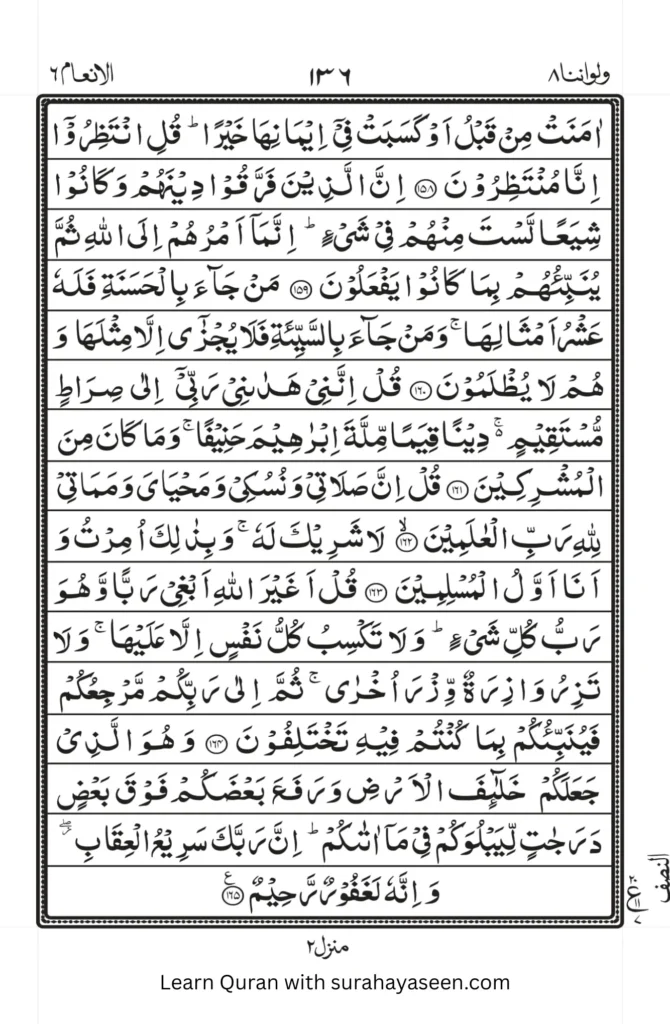 ولواننا ٨ ١٣٦ الانعام ٦
اٰمَنَتْ مِنْ قَبْلُ اَوْ كَسَبَتْ فِیْۤ اِیْمَانِهَا خَیْرًا ؕ قُلِ انْتَظِرُوْۤا
اِنَّا مُنْتَظِرُوْنَ ﴿۱۵۸﴾ اِنَّ الَّذِیْنَ فَرَّقُوْا دِیْنَهُمْ وَ كَانُوْا
شِیَعًا لَّسْتَ مِنْهُمْ فِیْ شَیْءٍ ؕ اِنَّمَاۤ اَمْرُهُمْ اِلَی اللّٰهِ ثُمَّ
یُنَبِّئُهُمْ بِمَا كَانُوْا یَفْعَلُوْنَ ﴿۱۵۹﴾ مَنْ جَآءَ بِالْحَسَنَةِ فَلَهٗ
عَشْرُ اَمْثَالِهَا ۚ وَ مَنْ جَآءَ بِالسَّیِّئَةِ فَلَا یُجْزٰۤی اِلَّا مِثْلَهَا وَ
هُمْ لَا یُظْلَمُوْنَ ﴿۱۶۰﴾ قُلْ اِنَّنِیْ هَدٰىنِیْ رَبِّیْۤ اِلٰی صِرَاطٍ
مُّسْتَقِیْمٍ ۚ۬ دِیْنًا قِیَمًا مِّلَّةَ اِبْرٰهِیْمَ حَنِیْفًا ۚ وَ مَا كَانَ مِنَ
الْمُشْرِكِیْنَ ﴿۱۶۱﴾ قُلْ اِنَّ صَلَاتِیْ وَ نُسُكِیْ وَ مَحْیَایَ وَ مَمَاتِیْ
لِلّٰهِ رَبِّ الْعٰلَمِیْنَ ﴿۱۶۲﴾ۙ لَا شَرِیْكَ لَهٗ ۚ وَ بِذٰلِكَ اُمِرْتُ وَ
اَنَا اَوَّلُ الْمُسْلِمِیْنَ ﴿۱۶۳﴾ قُلْ اَغَیْرَ اللّٰهِ اَبْغِیْ رَبًّا وَّ هُوَ
رَبُّ كُلِّ شَیْءٍ ؕ وَ لَا تَكْسِبُ كُلُّ نَفْسٍ اِلَّا عَلَیْهَا ۚ وَ لَا
تَزِرُ وَازِرَةٌ وِّزْرَ اُخْرٰی ۚ ثُمَّ اِلٰی رَبِّكُمْ مَّرْجِعُكُمْ
فَیُنَبِّئُكُمْ بِمَا كُنْتُمْ فِیْهِ تَخْتَلِفُوْنَ ﴿۱۶۴﴾ وَ هُوَ الَّذِیْ
جَعَلَكُمْ خَلٰٓئِفَ الْاَرْضِ وَ رَفَعَ بَعْضَكُمْ فَوْقَ بَعْضٍ
دَرَجٰتٍ لِّیَبْلُوَكُمْ فِیْ مَاۤ اٰتٰىكُمْ ؕ اِنَّ رَبَّكَ سَرِیْعُ الْعِقَابِ ۖؗ
وَ اِنَّهٗ لَغَفُوْرٌ رَّحِیْمٌ ﴿۱۶۵﴾ع
النصف
منزل ۲
Learn Quran with surahayaseen.com